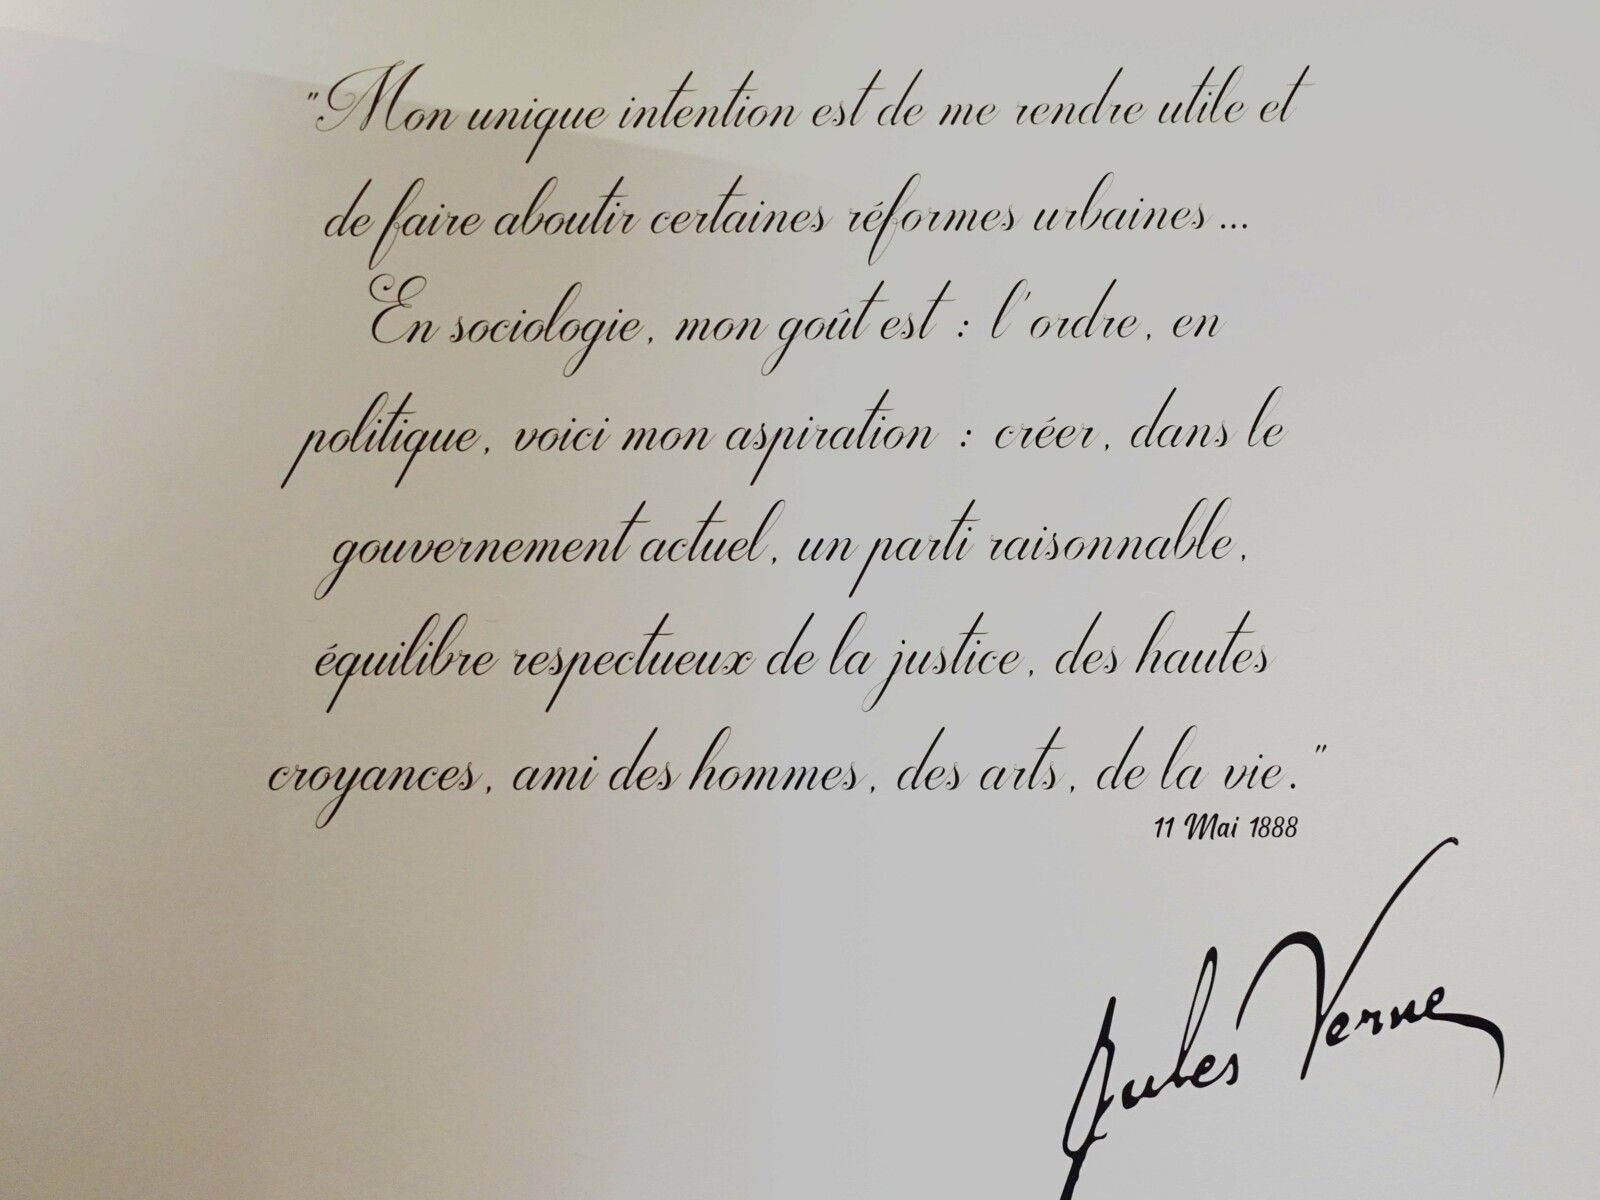 "Mon unique intention est de me rendre utile et
de faire aboutir certaines réformes urbaines...
En sociologie, mon goût est : l'ordre, en
politique, voici mon aspiration : créer, dans le
gouvernement actuel, un parti raisonnable,
équilibre respectueux de la justice, des hautes
croyances, ami des hommes, des arts, de la vie."
11 Mai 1888
Jules Verne